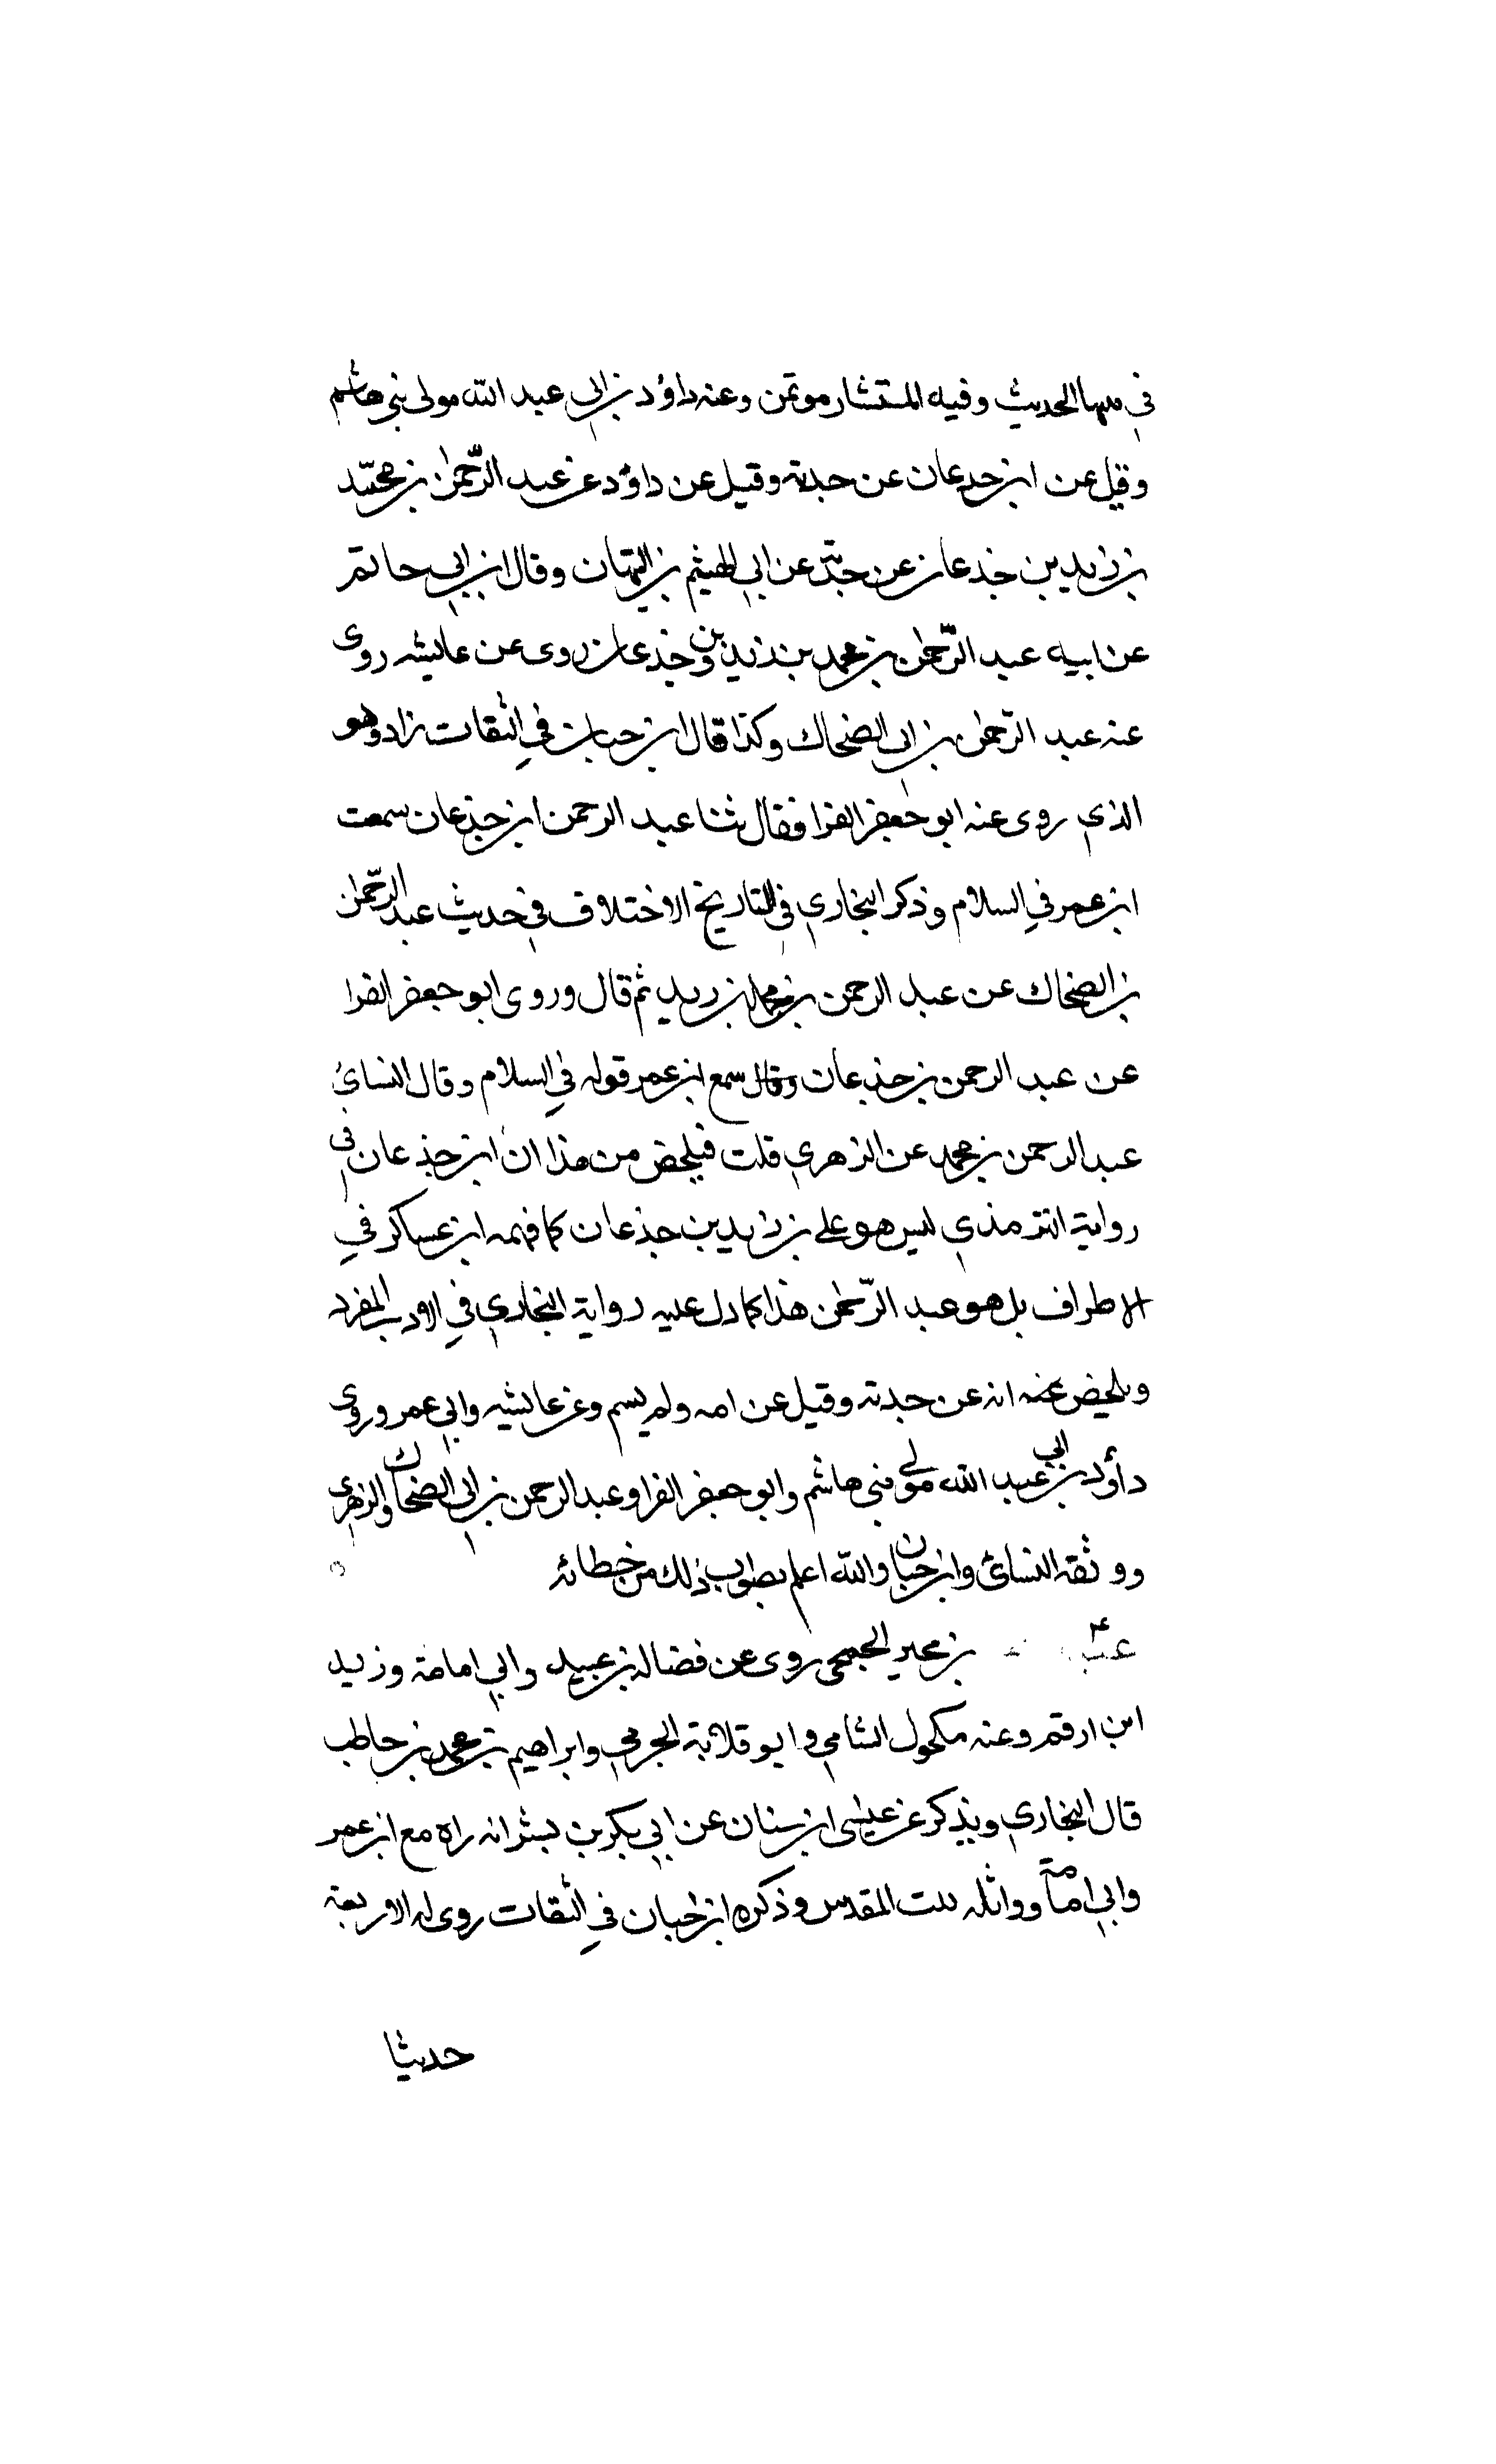 في منها الحديث وفيه المستشار موتمن وعنه داؤد بن ابي عبد الله مولى بني هاشم
وقيل عن ابن جدعان عن جدته وقيل عن داؤد عن عبد الرّحمٰن بن محمّد
بن زيد بن جدعان عن جدّته عن ابي الهيثم بن التيهان وقال ابن ابي حاتم
عن ابيه عبد الرّحمٰن بن محمد بن زيد بن جدعان روى عن عايشه روى
عنه عبد الرّحمٰن بن ابي الضحاك وكذا قال ابن حبان في الثقات زاد وهو
الذي روى عنه ابو جعفر الفرا فقال ثنا عبد الرحمن ابن جذعان سمعت
ابن عمر في السلام وذكر البخاري في التاريخ الاختلاف في حديث عبد الرّحمٰن
بن الضحاك عن عبد الرحمن بن محمد بن زيد ثم قال وروى ابو جعفر الفرا
عن عبد الرحمن بن جذعان وقال سمع ابن عمر قوله في السلام وقال النسائ
عبد الرحمن بن محمد عن الزهري قلت فيلخص من هذا ان ابن جذعان في
رواية الترمذي ليس هو علي بن زيد بن جذعان كما فهمه ابن عساكر في
الاطراف بل هو عبد الرّحمٰن هذا كما دل عليه رواية البخاري في الادب المفرد
ويلخص عنه انه عن جدته وقيل عن امه ولم يسم وعن عايشيه وابي عمر وروى
داؤد بن ابي عبيد الله مولى بني هاشم وابو جعفر الفرا وعبد الرحمن بن ابي الضحاك والزهري
ووثقه النسائ وابن حبان والله اعلم بصواب ذلك من خطائه
بن محير الجمحي روى عن فضاله بن عبيد وابي امامة وزيد
ابن ارقم وعنه مكحول الشامي وابو قلابة الجرمي وابراهيم بن محمد بن حاطب
قال البخاري ويذكر عن عيسى ابن سنان عن ابي بكر بن بشر انه راه مع ابن عمر
وابي امامة وواثله بيت المقدس وذكره ابن حبان في الثقات روى له الاربعة
حديثا